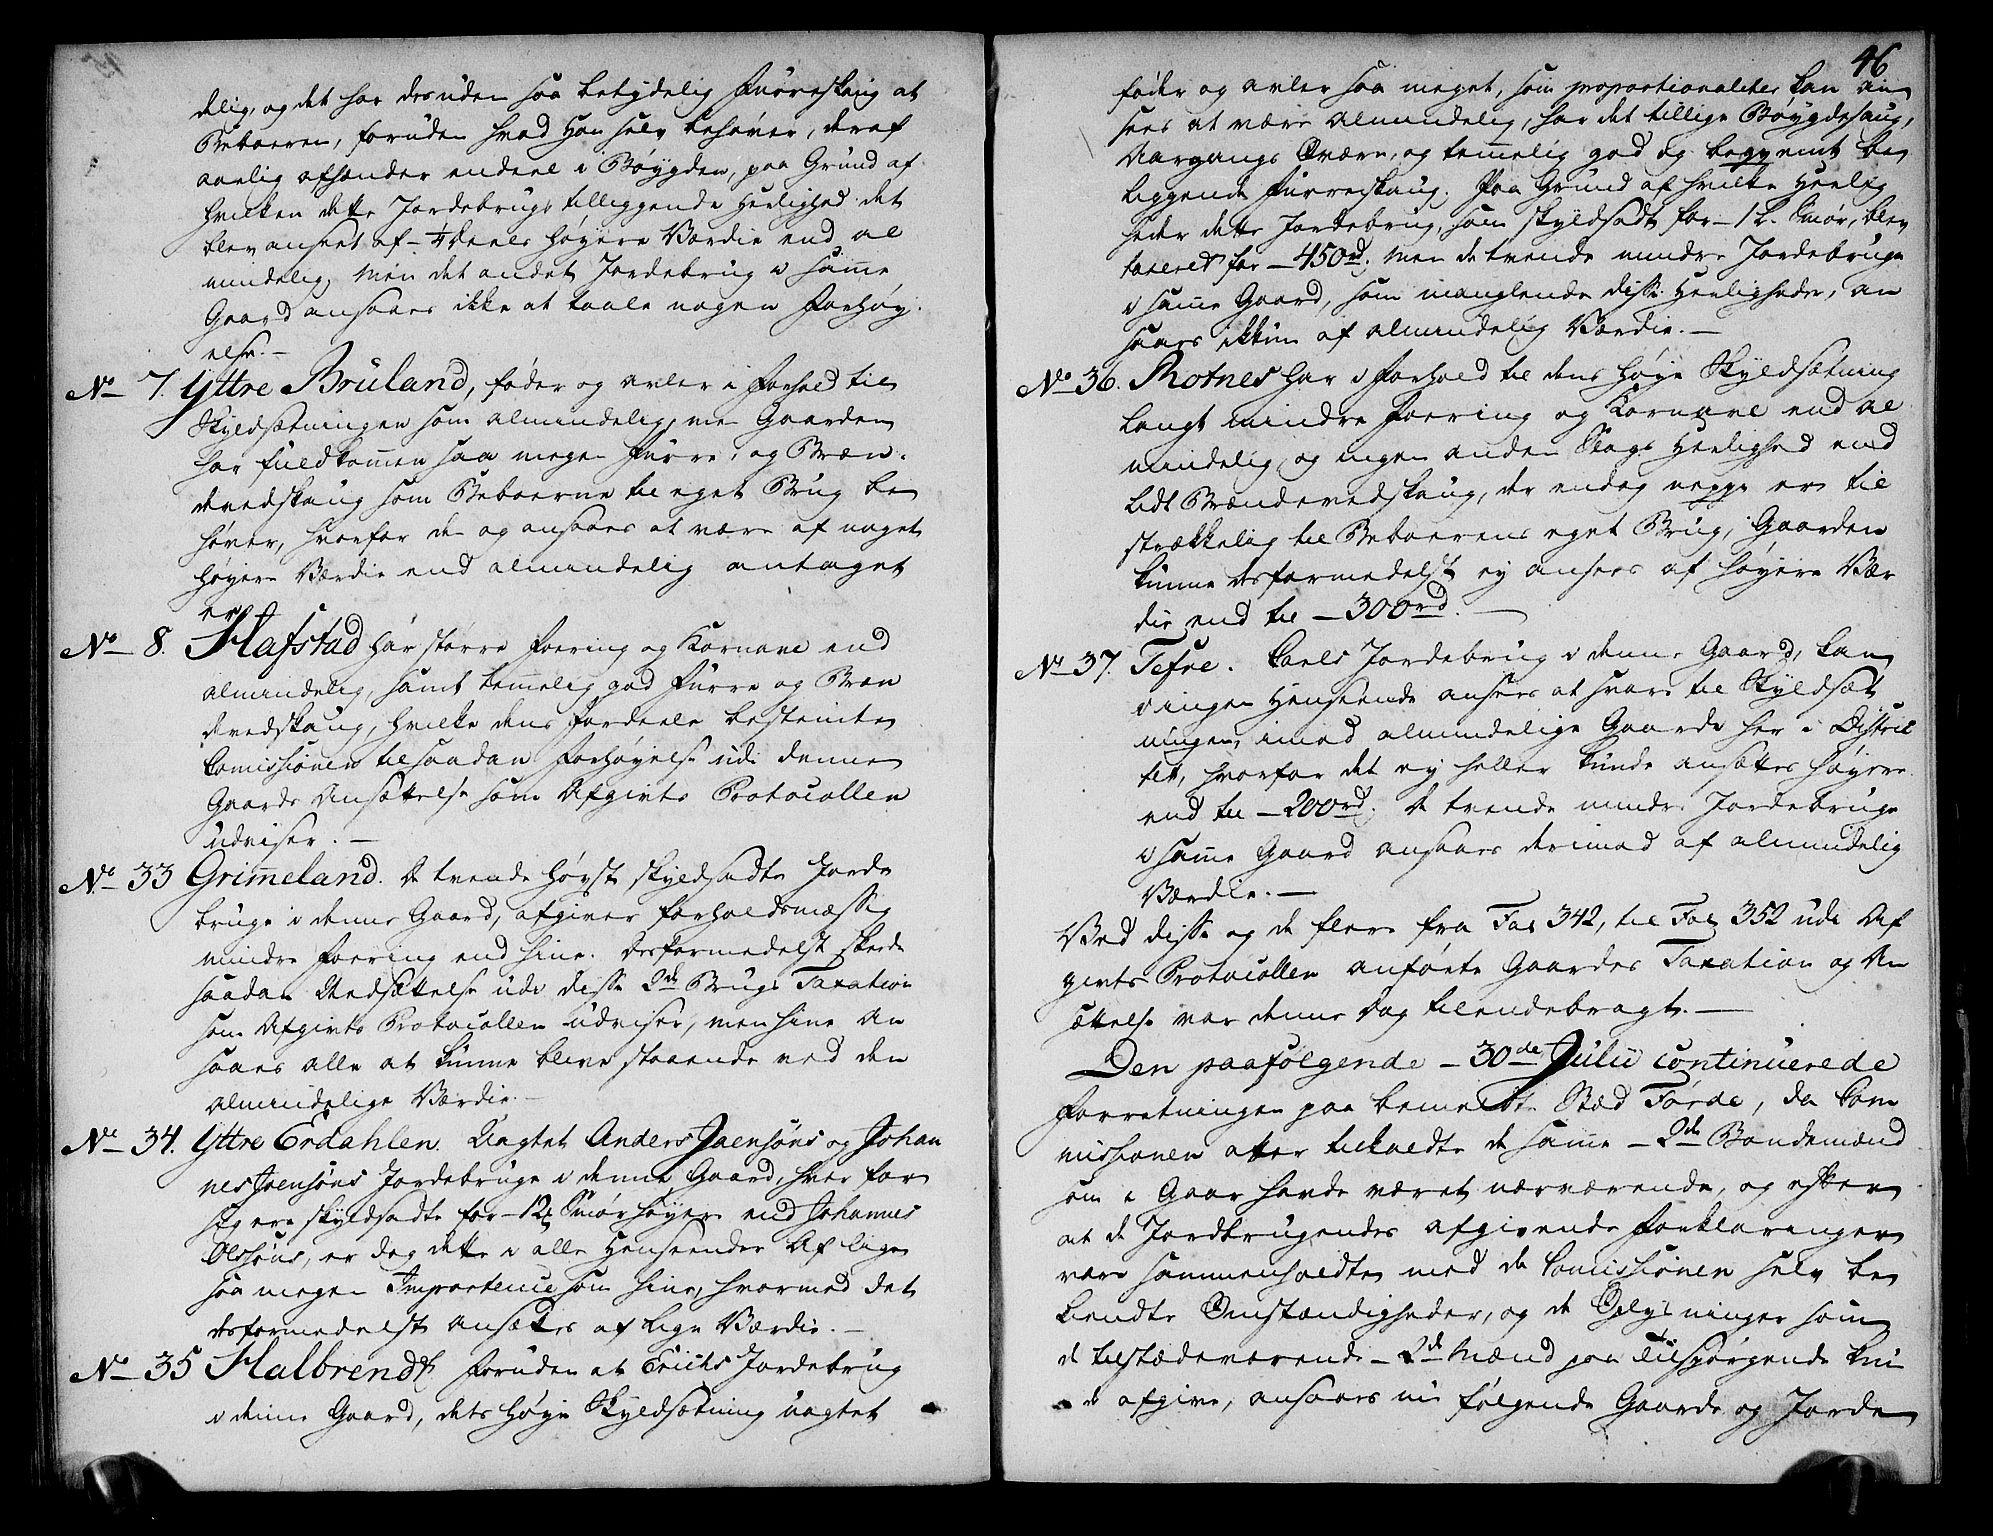 delig, og det har desuden saa betydelig Furreskaug at
Beboeren, foruden hvad Han selv behøver, deraf
aarlig afhænder endeel i Bøygden, paa Grund af
hvilken dette Jordebrugs tilliggende Herlighed det
blev anseet af - 1/4 Deels høyere Værdie end al
mindelig, Men det andet Jordebrug i samme
Gaard ansaaes ikke at taale nogen Forhøy-
else. -
No 7. Yttre Bruland, føder og avler i Forhold til
Skyldsætningen som almindelig, men Gaarden
har fuldkommen saa megen Furre, og Bræn-
devedskaug som Beboerne til eget Brug be
høver, hvorfor den og ansaaes at være af noget
høyere Værdie end almindelig antaget
er.
No 8. Hafstad har større Foering og Kornavl end
almindelig, samt temmelig god Furre og Bræn
devedskaug, hvilke dens Fordeele bestemte
Comissionen til saadan Forhøyelse udi denne
Gaards Ansættelse som Afgivts Protocollen
udviser. -
No 33 Grimeland. De tvende høyst skyldsadte Jorde
bruge i denne Gaard, afgiver forholdsmæssig
mindre Foering end hine. Desformedelst skeede
saadan Nedsættelse udi disse 2de Brugs Taxation
som Afgivts Protocollen udviser, men hine an
saaes alle at kunne blive staaende ved den
almindelige Værdie. -
No 34. Yttre Erdahlen. Uagtet Anders Joensøns og Johan
nes Joensøns Jordebruge i denne Gaard, hver for
sig ere skyldsadte for - 12 Smør høyere end Johannes
Olssøns, er dog dette i alle Henseender af lige
saa megen Importence som hine, hvormed det
desformedelst ansættes af lige Værdie. -
No 35 Halbrendt foruden at Erichs Jordebrug
i denne Gaard, dets høye Skyldsætning uagtet
46
føder og avler saa meget, som proportionaliter kan an
sees at være almindelig, har det tillige Bøygdesaug,
Aargangs Qværn, og temmelig god og beqvemt be
liggende Furreskaug. Paa Grund af hvilke Herlig
heder dette Jordebrug, som skyldsadt for - 1 L. Smør, blev
taxeret for - 450 rd. Men de tvende mindre Jordebruge
i samme Gaard, som manglende disse Herligheder, an
saaes ikkun af almindelig Værdie. -
No 36. Rotnes har i Forhold til dens høye Skyldsætning
langt mindre Foering og Kornavl end al
mindelig, og ingen anden Slags Herlighed end
lidt Brændevedskaug, der endog neppe er til
strækkelig til Beboerens eget Brug, Gaarden
kunne desformedelst ey ansees af høyere Vær
die end til - 300 rd. -
No 37. Tefre. Carls Jordebrug i denne Gaard, kan
i ingen Henseende ansees at svare til Skyldsæt
ningen, imod almindelige Gaarde her i Distric
tet, hvorfor det ey heller kunde ansættes høyere
end til - 200 rd. De tvende mindre Jordebruge
i samme Gaard ansaaes derimod af almindelig
Værdie. -
Ved disse og de flere fra Fol 342, til Fol 352 udi Af
givts Protocollen anførte Gaardes Taxation og An
sættelse var denne Dag tilendebragt. -
Den paafølgende - 30de Julii continuerede
Forretningen paa bemeldte Stæd Førde, da Com
missionen atter tilkaldte de samme - 2de Bondemænd
som i Gaar havde været nærværende, og efter
at de Jordbrugendes afgivende Forklaringer
vare sammenholdte med de Comissionen selv be
kendte Omstændigheder, og de Oplysninger som
de tilstædeværende - 2de Mænd paa Tilspørgende kun
de afgive, ansaaes nu følgende Gaarde og Jorde